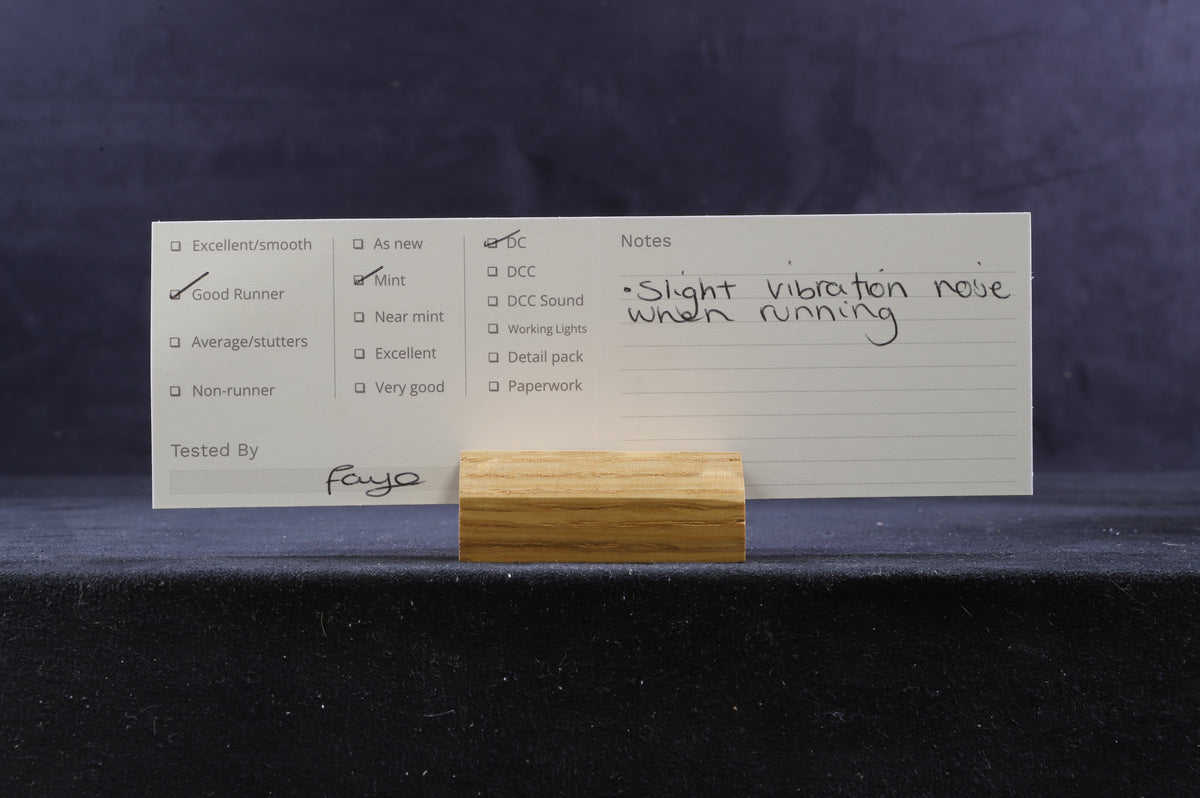 Excellent/smooth
Good Runner
Average/stutters
Non-runner
As new
Mint
Near mint
Excellent
Very good
DC
DCC
DCC Sound
Working Lights
Detail pack
Paperwork
Tested By
Faye
Notes
•Slight vibration noise
when running